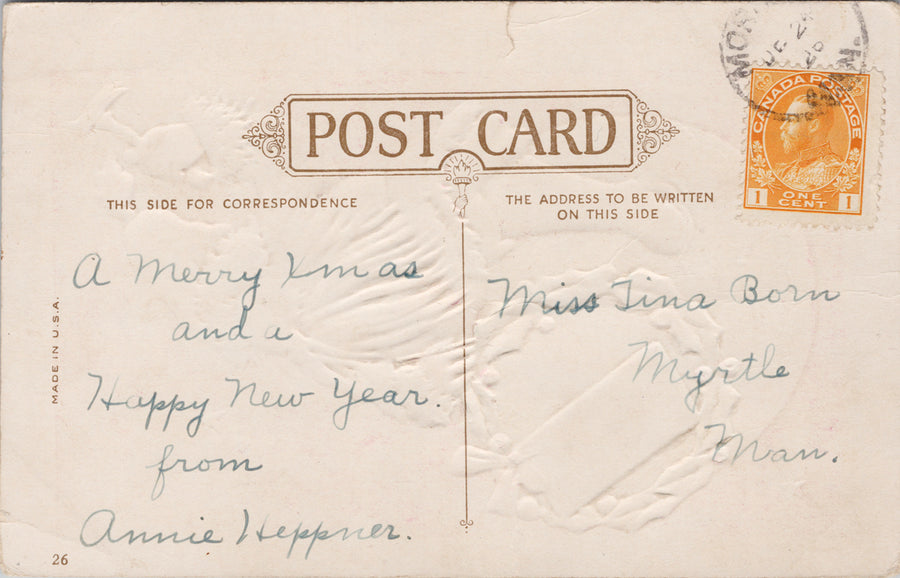 POST CARD
THIS SIDE FOR CORRESPONDENCE
THE ADDRESS TO BE WRITTEN
ON THIS SIDE
CANADA POSTAGE
1 ONE CENT 1
A Merry Xmas
and a
Happy New Year.
from
Annie Heppner.
Miss Tina Born
Myrtle
Man.
MADE IN U.S.A.
26